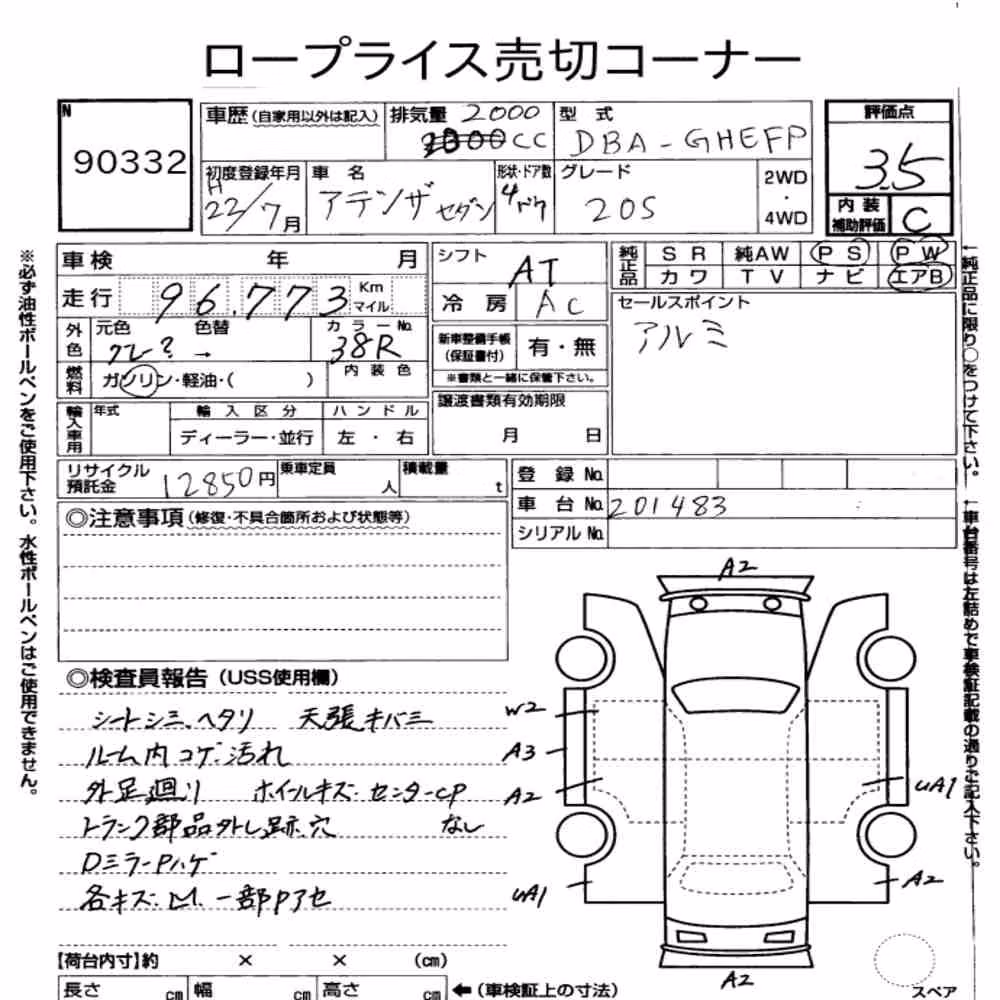 ロープライス売切コーナー
N
90332
車歴(自家用以外は記入) 排気量 2000 CC 型 式 DBA-GHEFP
初度登録年月 H 22/7月 車 名 アテンザ セダン 形状・ドア数 4ドア グレード 20S 2WD・4WD
評価点 3.5
内装補助評価 C
車検 年 月
走行 96,773 Km マイル
外色 元色 グレー? 色替 → カラーNo. 38R
燃料 ガソリン・軽油・( ) 内装色
輸入車用 年式 輸入区分 ハンドル
ディーラー・並行 左・右
シフト AT
冷房 AC
新車整備手帳(保証書付) 有・無
※書類と一緒に保管下さい。
譲渡書類有効期限
月 日
純正品 SR 純AW PS PW
カワ TV ナビ エアB
セールスポイント
アルミ
リサイクル預託金 12850円 乗車定員 人 積載量 t
登録No.
車台No. 201483
シリアルNo.
◎注意事項(修復・不具合箇所および状態等)
◎検査員報告(USS使用欄)
シートシミ、ヘタリ 天張キバミ
ルーム内コゲ・汚れ
外足廻り ホイールキズ・センターCP
トランク部品外し跡・穴 なし
DミラーPハゲ
各キズ・凹 一部Pアセ
【荷台内寸】約 × × (cm)
長さ cm 幅 cm 高さ cm ←(車検証上の寸法)
A2
W2
A3
A2
UA1
UA1
A2
A2
スペア
※必ず油性ボールペンをご使用下さい。水性ボールペンはご使用できません。
←純正品に限り○をつけて下さい。
←車台番号は左詰めで車検証記載の通りご記入下さい。